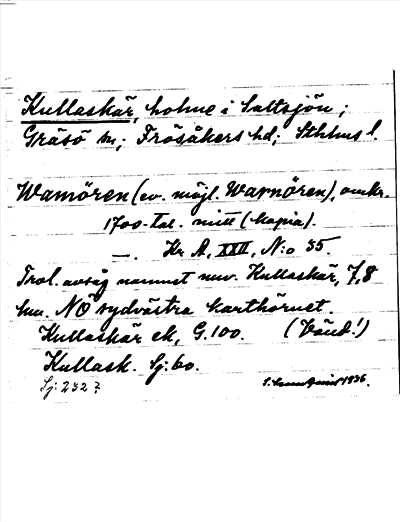 Kullaskär, holme i Saltsjön;
Gräsö sn; Frösåkers hd; Sthlms l.
Wamören (ev. möjl. Warnören), omkr.
1700-tal. mitt (kopia).
—. Kr A, XXII, N:o 35
Trol. avsåg namnet nuv. Kullaskär, 7,8
km. NÖ sydvästra karthörnet
Kullaskär ek, G.100. (Vänd!)
Kullask. Sj:60.
Sj: 232?
1936.